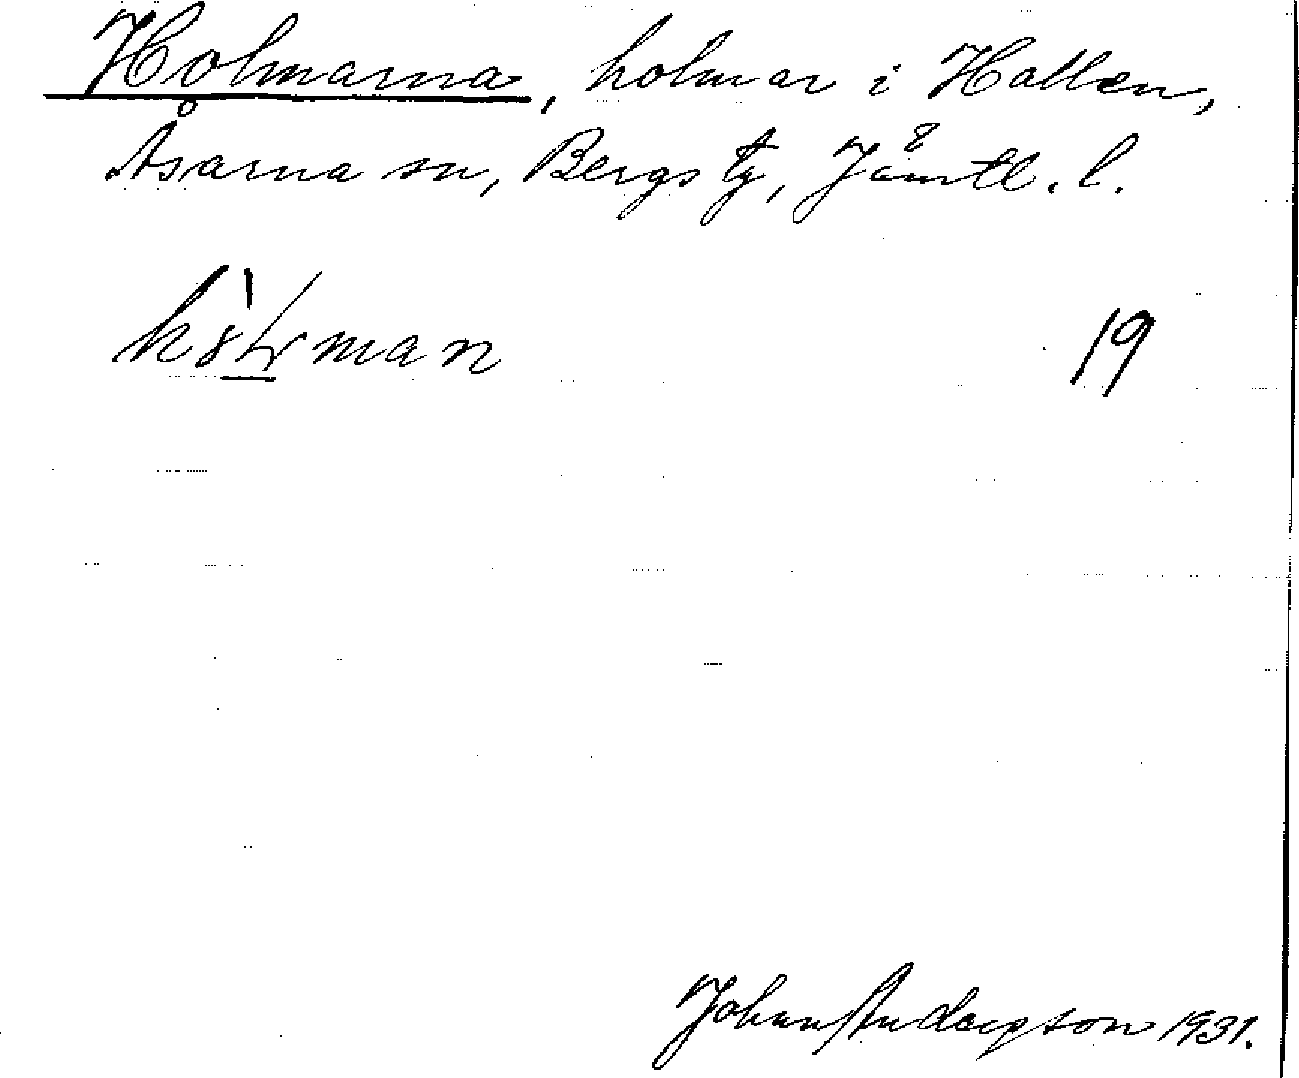 Holmarna, holmar i Hallen,
Åsarna sn, Bergs tg, Jämtl. l.
19
Johan Anderson 1931.